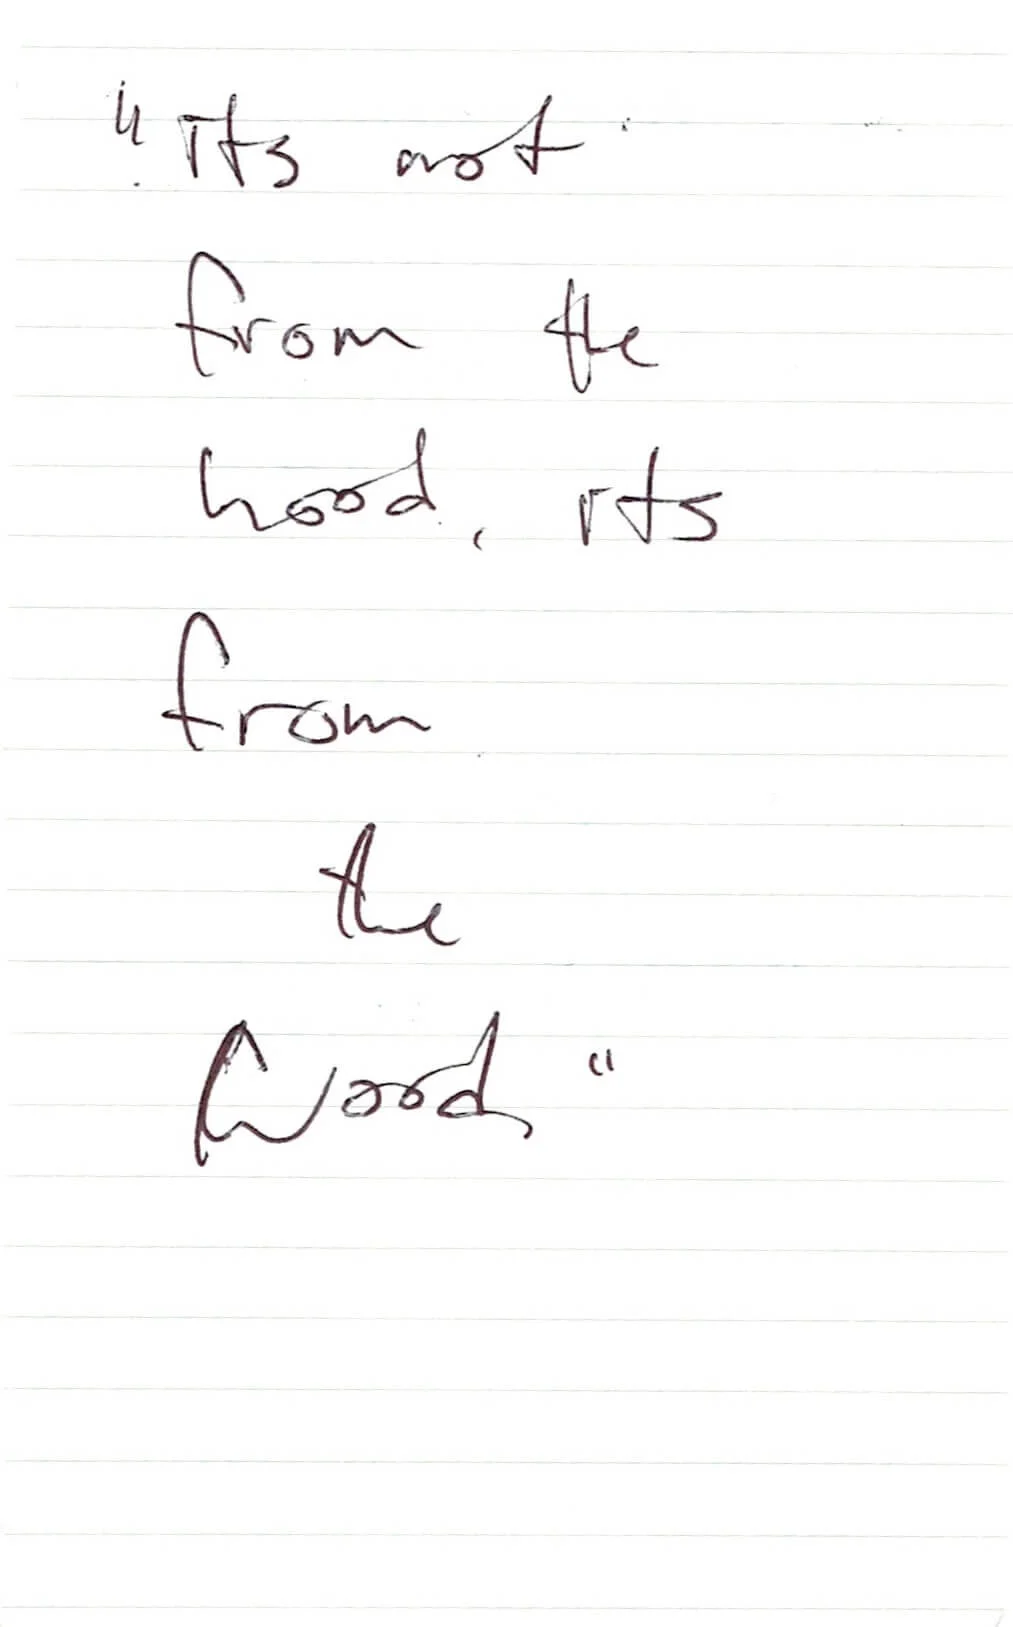 "Its not
from the
hood, its
from
the
Wood"